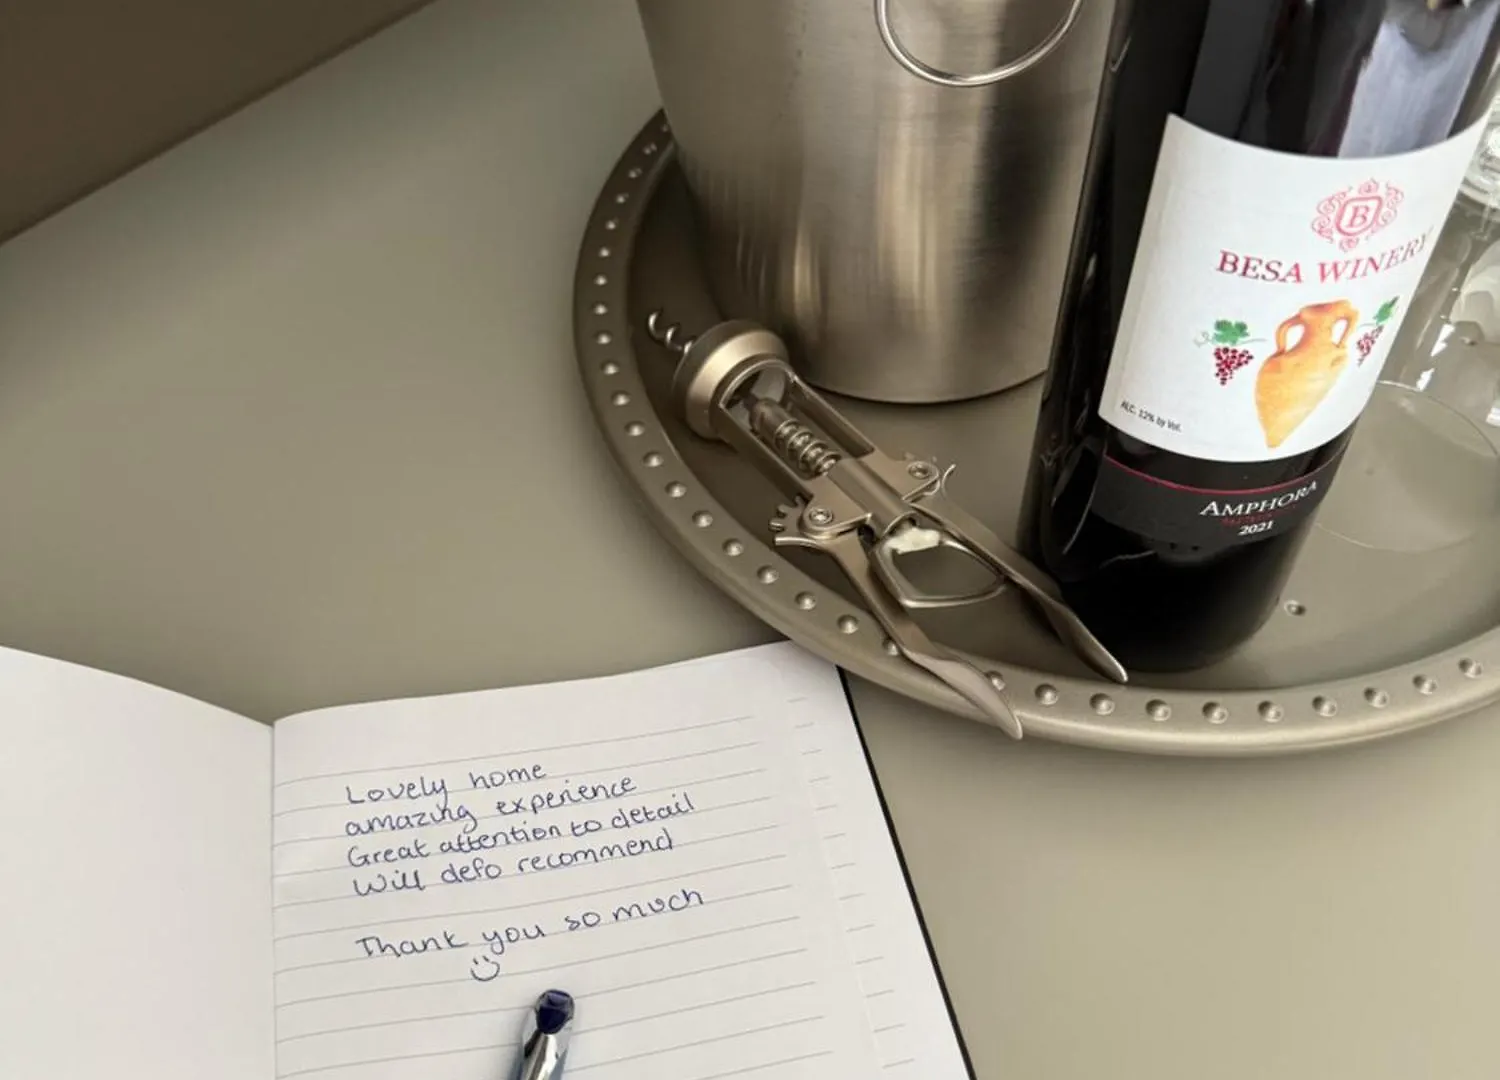 B
BESA WINERY
ALC. 12% by Vol.
AMPHORA
2021
Lovely home
amazing experience
Great attention to detail
Will defo recommend
Thank you so much